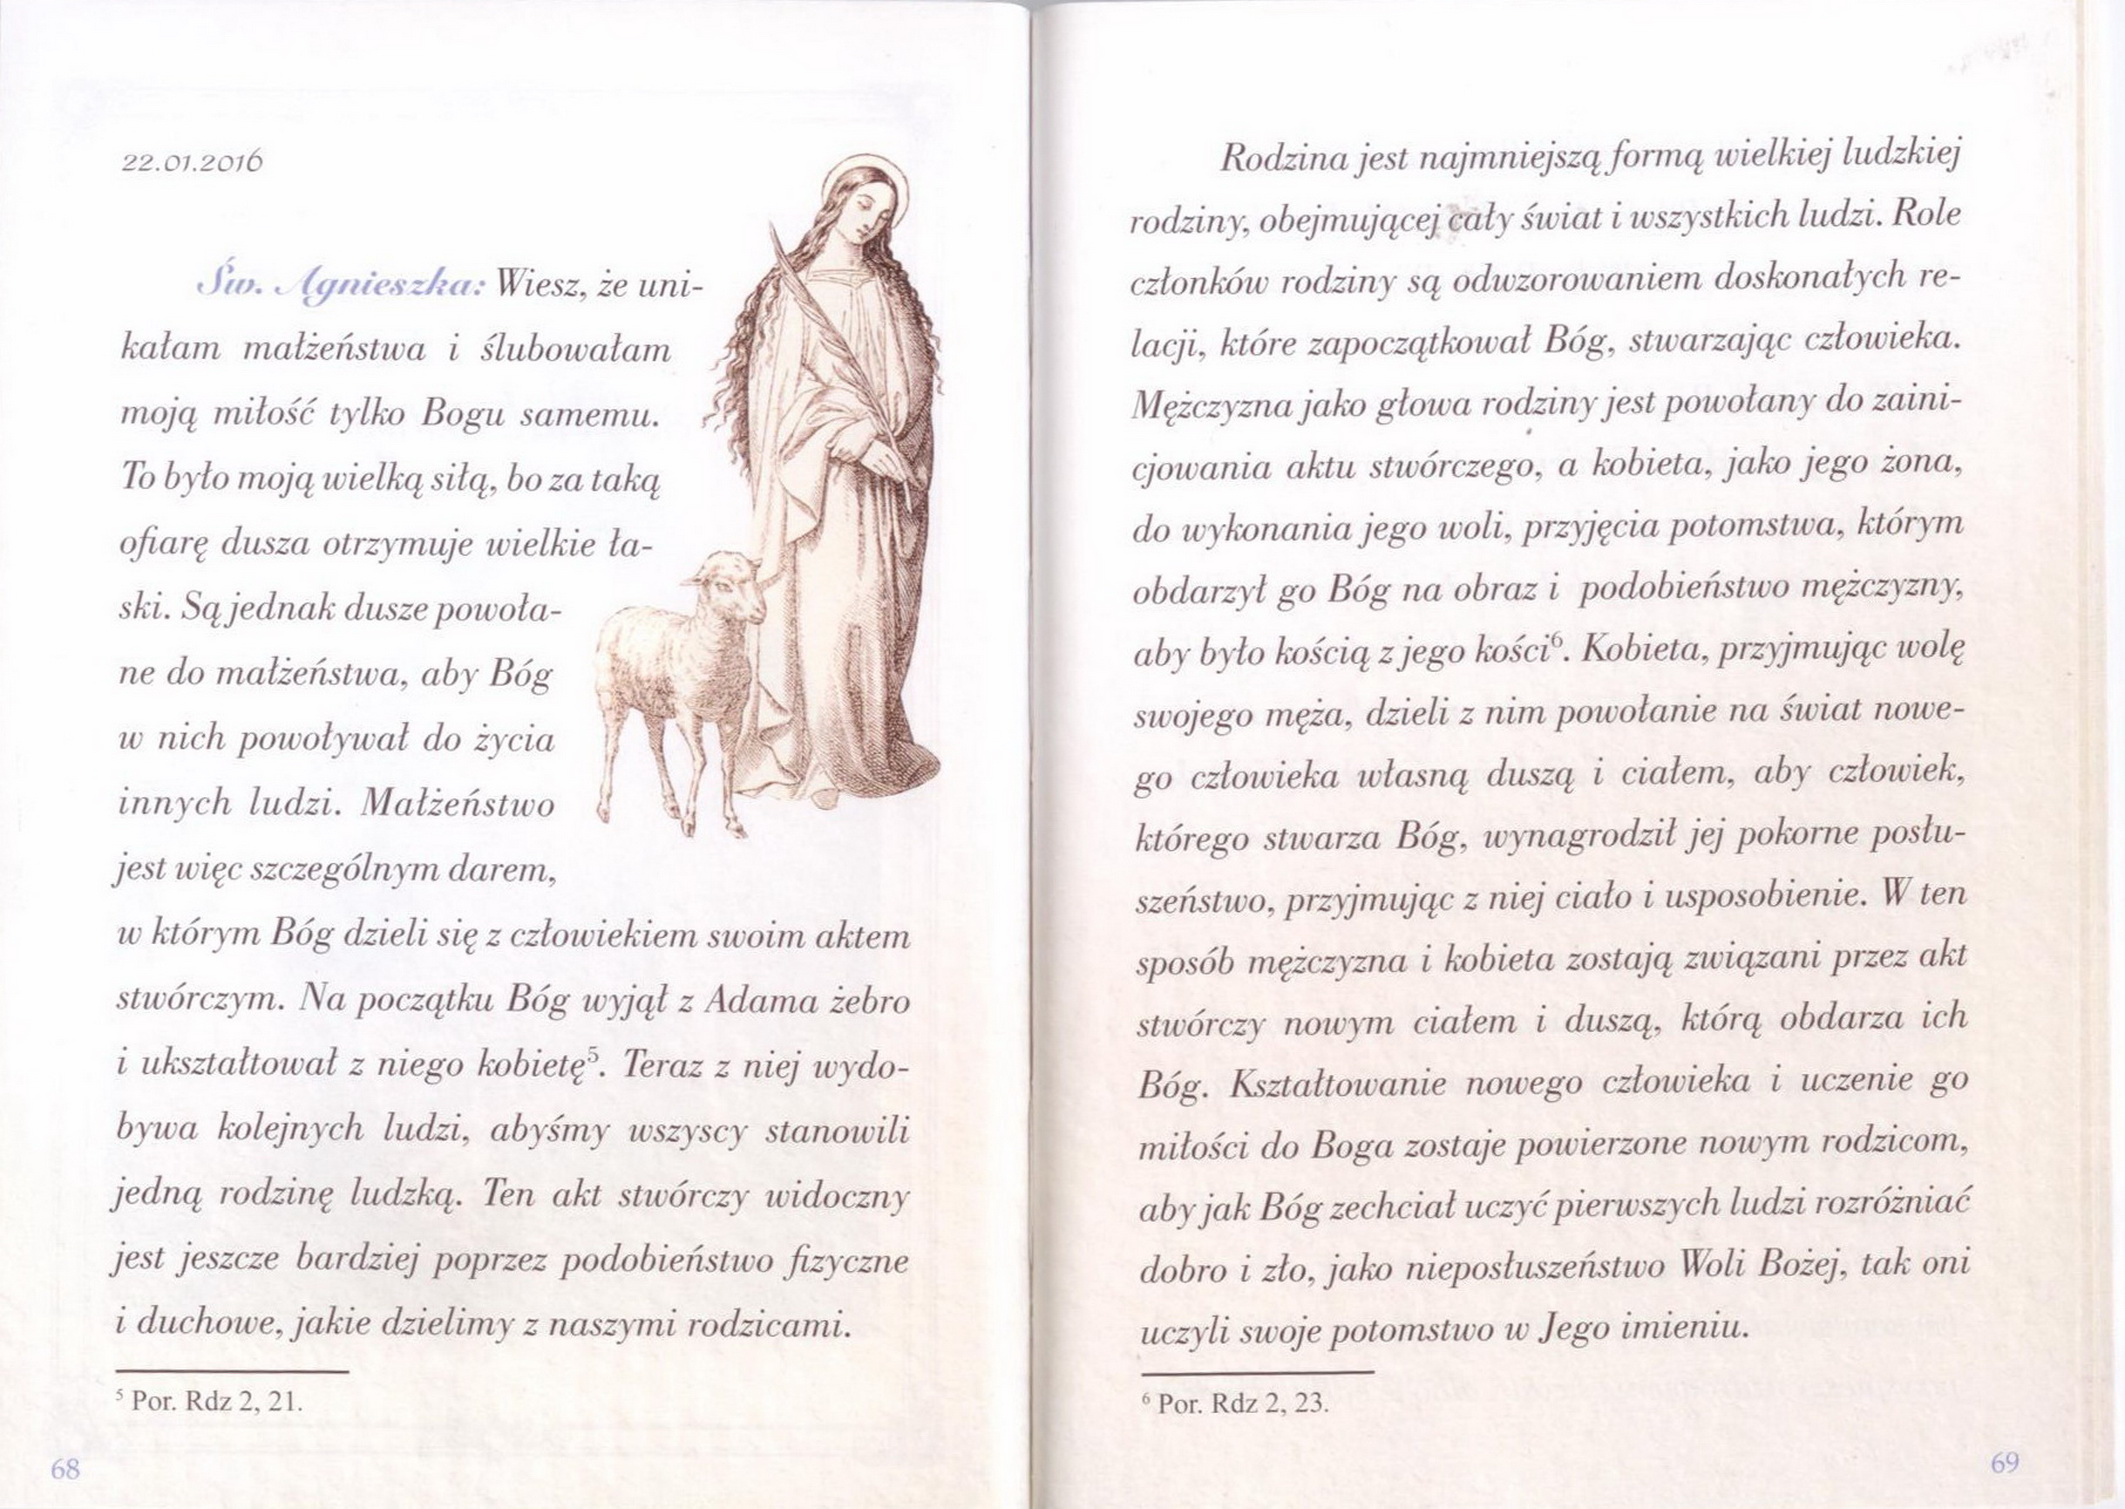 22.01.2016
Św. Agnieszka: Wiesz, że uni-
kałam małżeństwa i ślubowałam
moją miłość tylko Bogu samemu.
To było moją wielką siłą, bo za taką
ofiarę dusza otrzymuje wielkie ła-
ski. Są jednak dusze powoła-
ne do małżeństwa, aby Bóg
w nich powoływał do życia
innych ludzi. Małżeństwo
jest więc szczególnym darem,
w którym Bóg dzieli się z człowiekiem swoim aktem
stwórczym. Na początku Bóg wyjął z Adama żebro
i ukształtował z niego kobietę⁵. Teraz z niej wydo-
bywa kolejnych ludzi, abyśmy wszyscy stanowili
jedną rodzinę ludzką. Ten akt stwórczy widoczny
jest jeszcze bardziej poprzez podobieństwo fizyczne
i duchowe, jakie dzielimy z naszymi rodzicami.
⁵ Por. Rdz 2, 21.
68
Rodzina jest najmniejszą formą wielkiej ludzkiej
rodziny, obejmującej cały świat i wszystkich ludzi. Role
członków rodziny są odwzorowaniem doskonałych re-
lacji, które zapoczątkował Bóg, stwarzając człowieka.
Mężczyzna jako głowa rodziny jest powołany do zaini-
cjowania aktu stwórczego, a kobieta, jako jego żona,
do wykonania jego woli, przyjęcia potomstwa, którym
obdarzył go Bóg na obraz i podobieństwo mężczyzny,
aby było kością z jego kości⁶. Kobieta, przyjmując wolę
swojego męża, dzieli z nim powołanie na świat nowe-
go człowieka własną duszą i ciałem, aby człowiek,
którego stwarza Bóg, wynagrodził jej pokorne posłu-
szeństwo, przyjmując z niej ciało i usposobienie. W ten
sposób mężczyzna i kobieta zostają związani przez akt
stwórczy nowym ciałem i duszą, którą obdarza ich
Bóg. Kształtowanie nowego człowieka i uczenie go
miłości do Boga zostaje powierzone nowym rodzicom,
aby jak Bóg zechciał uczyć pierwszych ludzi rozróżniać
dobro i zło, jako nieposłuszeństwo Woli Bożej, tak oni
uczyli swoje potomstwo w Jego imieniu.
⁶ Por. Rdz 2, 23.
69